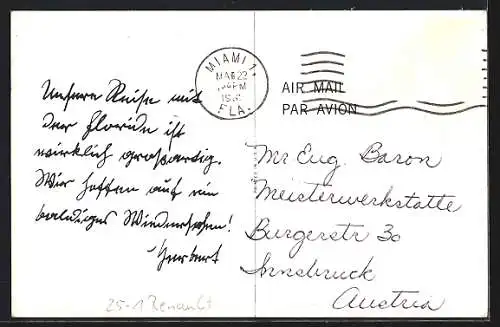 MIAMI 1.
MAR 22
PM
FLA.
AIR MAIL
PAR AVION
Unsere Reise mit
der Floride ist
wirklich großartig.
Wir hoffen auf ein
baldiges Wiedersehen!
Herbert
Mr Eug. Baron
Meisterwerkstatte
Burgerstr 30
Innsbruck
Austria
25-1 Renault